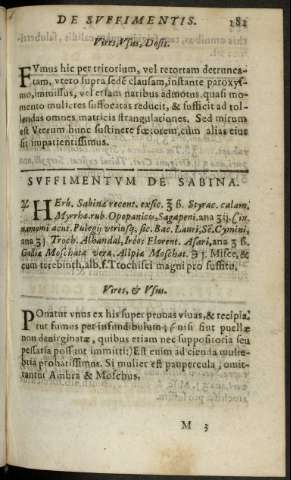 DE SVFFIMENTIS. 181
Vires, Vsus, Dosis.
FVmus hic per tritorium, vel retortam detrunca-
tam, vtero supra sedē clausam, instante paroxys-
mo, immissus, vel etiam naribus admotus, quasi mo-
mento mulieres suffocatas reducit, & sufficit ad tol-
lendas omnes matricis strangulationes. Sed mirum
est Vterum hunc sustinere fœtorem, cùm alias eius
sit impatientissimus.
SVFFIMENTVM DE SABINA.
HErb. Sabinæ recent. exsic. ʒ ß. Styrac. calam.
Myrrhæ. rub. Opopanicis, Sagapeni, ana ʒij. Cin-
namomi acut. Pulegij vtriusq́;, sic. Bac. Lauri, Sē. Cymini,
ana ʒj Troch. Alhandal, Ireos Florent. Asari, ana ʒ ß.
Galliæ Moschata vera, Alipia Moschat. ℈ j. Misce, &
cum terebinth. alb. f. Trochisci magni pro suffitu.
Vires, & Vsus.
POnatur vnus ex his super prunas viuas, & recipia-
tur fumus per infundibulum; (nisi siut puellæ
non devirginatæ, quibus etiam nec suppositoria seu
pessaria possunt immitti:) Est enim ad cienda mulie-
bria probatissimus. Si mulier est paupercula, omit-
tantur Ambra & Moschus.
M 3